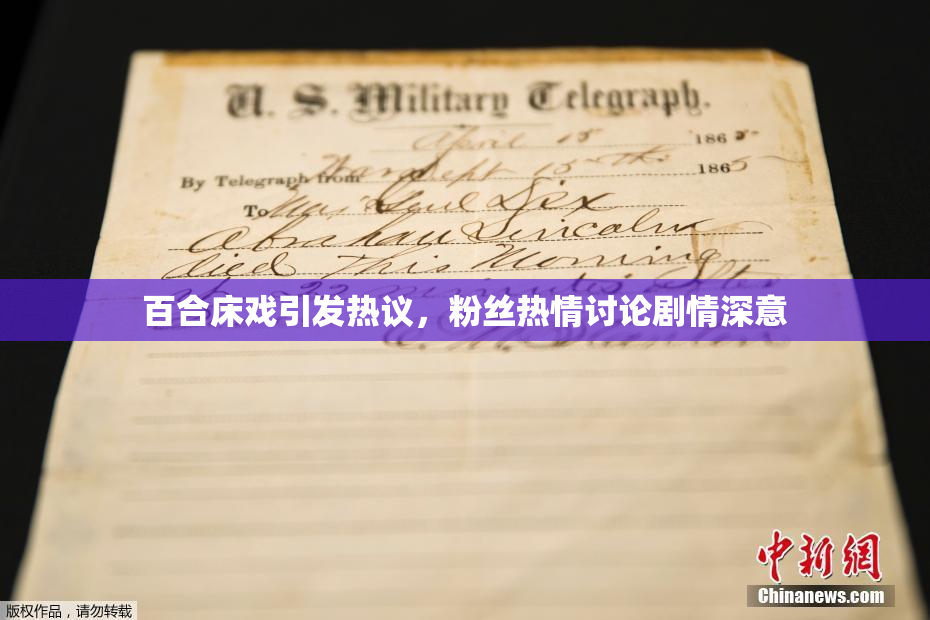 U. S. Military Telegraph.
April 15 1865
By Telegraph from War Dept 15th 1865
To Maj Genl Dix
Abraham Lincoln
died This Morning
at 22 minutes after
百合床戏引发热议，粉丝热情讨论剧情深意
中新网
Chinanews.com
版权作品，请勿转载